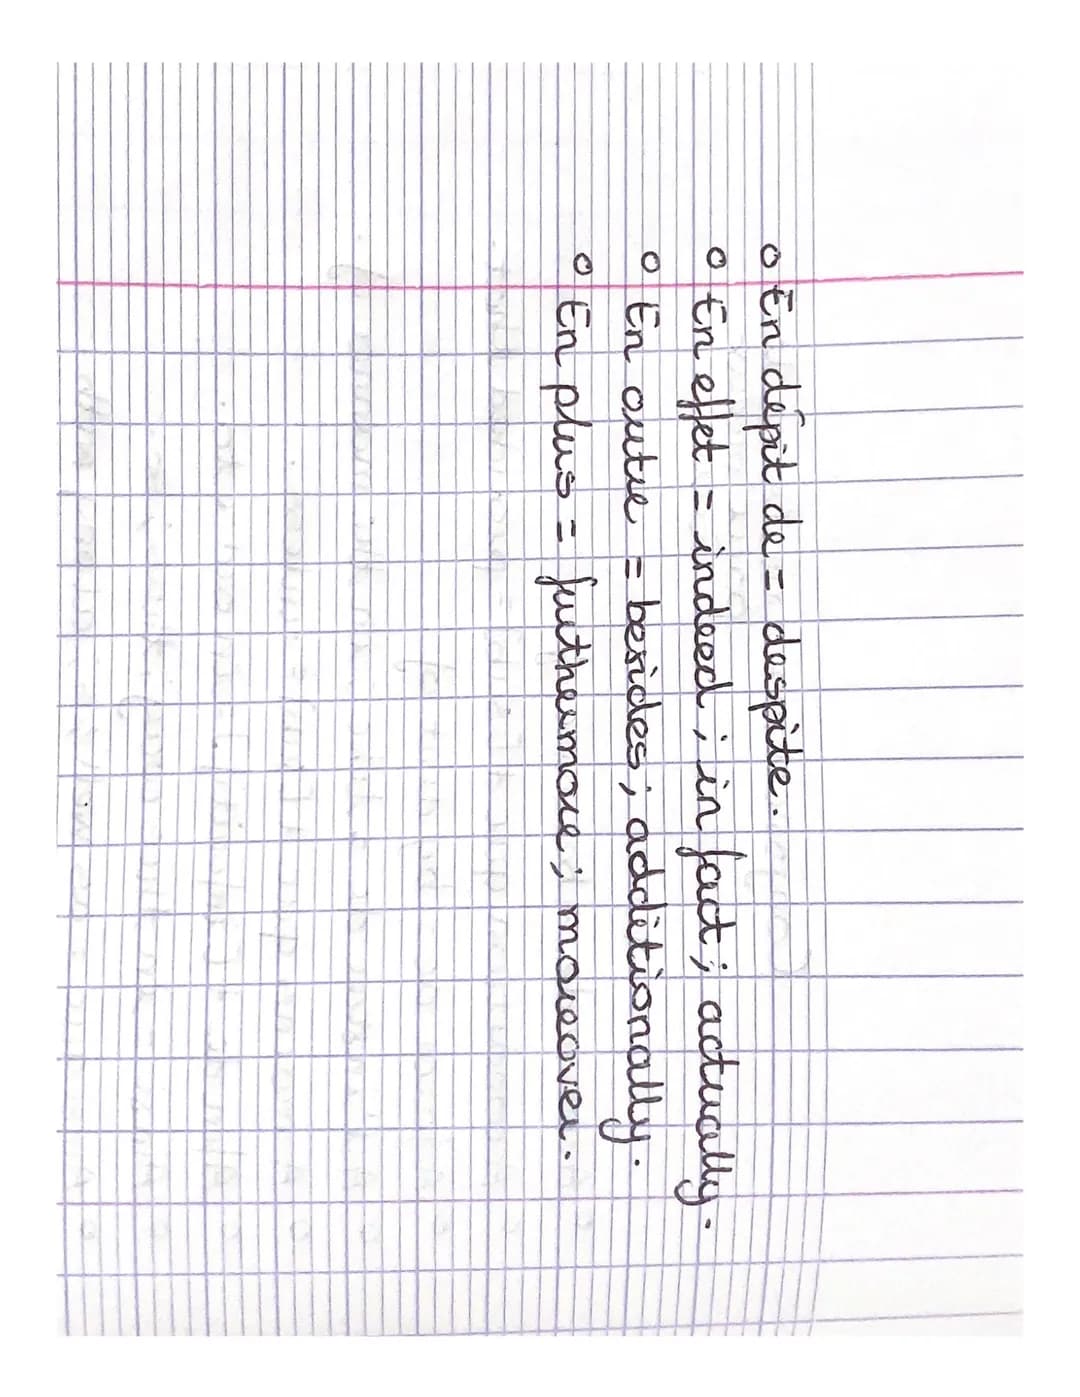 o En dépit de = despite.
o En effet = indeed; in fact; actually.
o En outre = besides; additionally.
o En plus = furthermore; moreover.